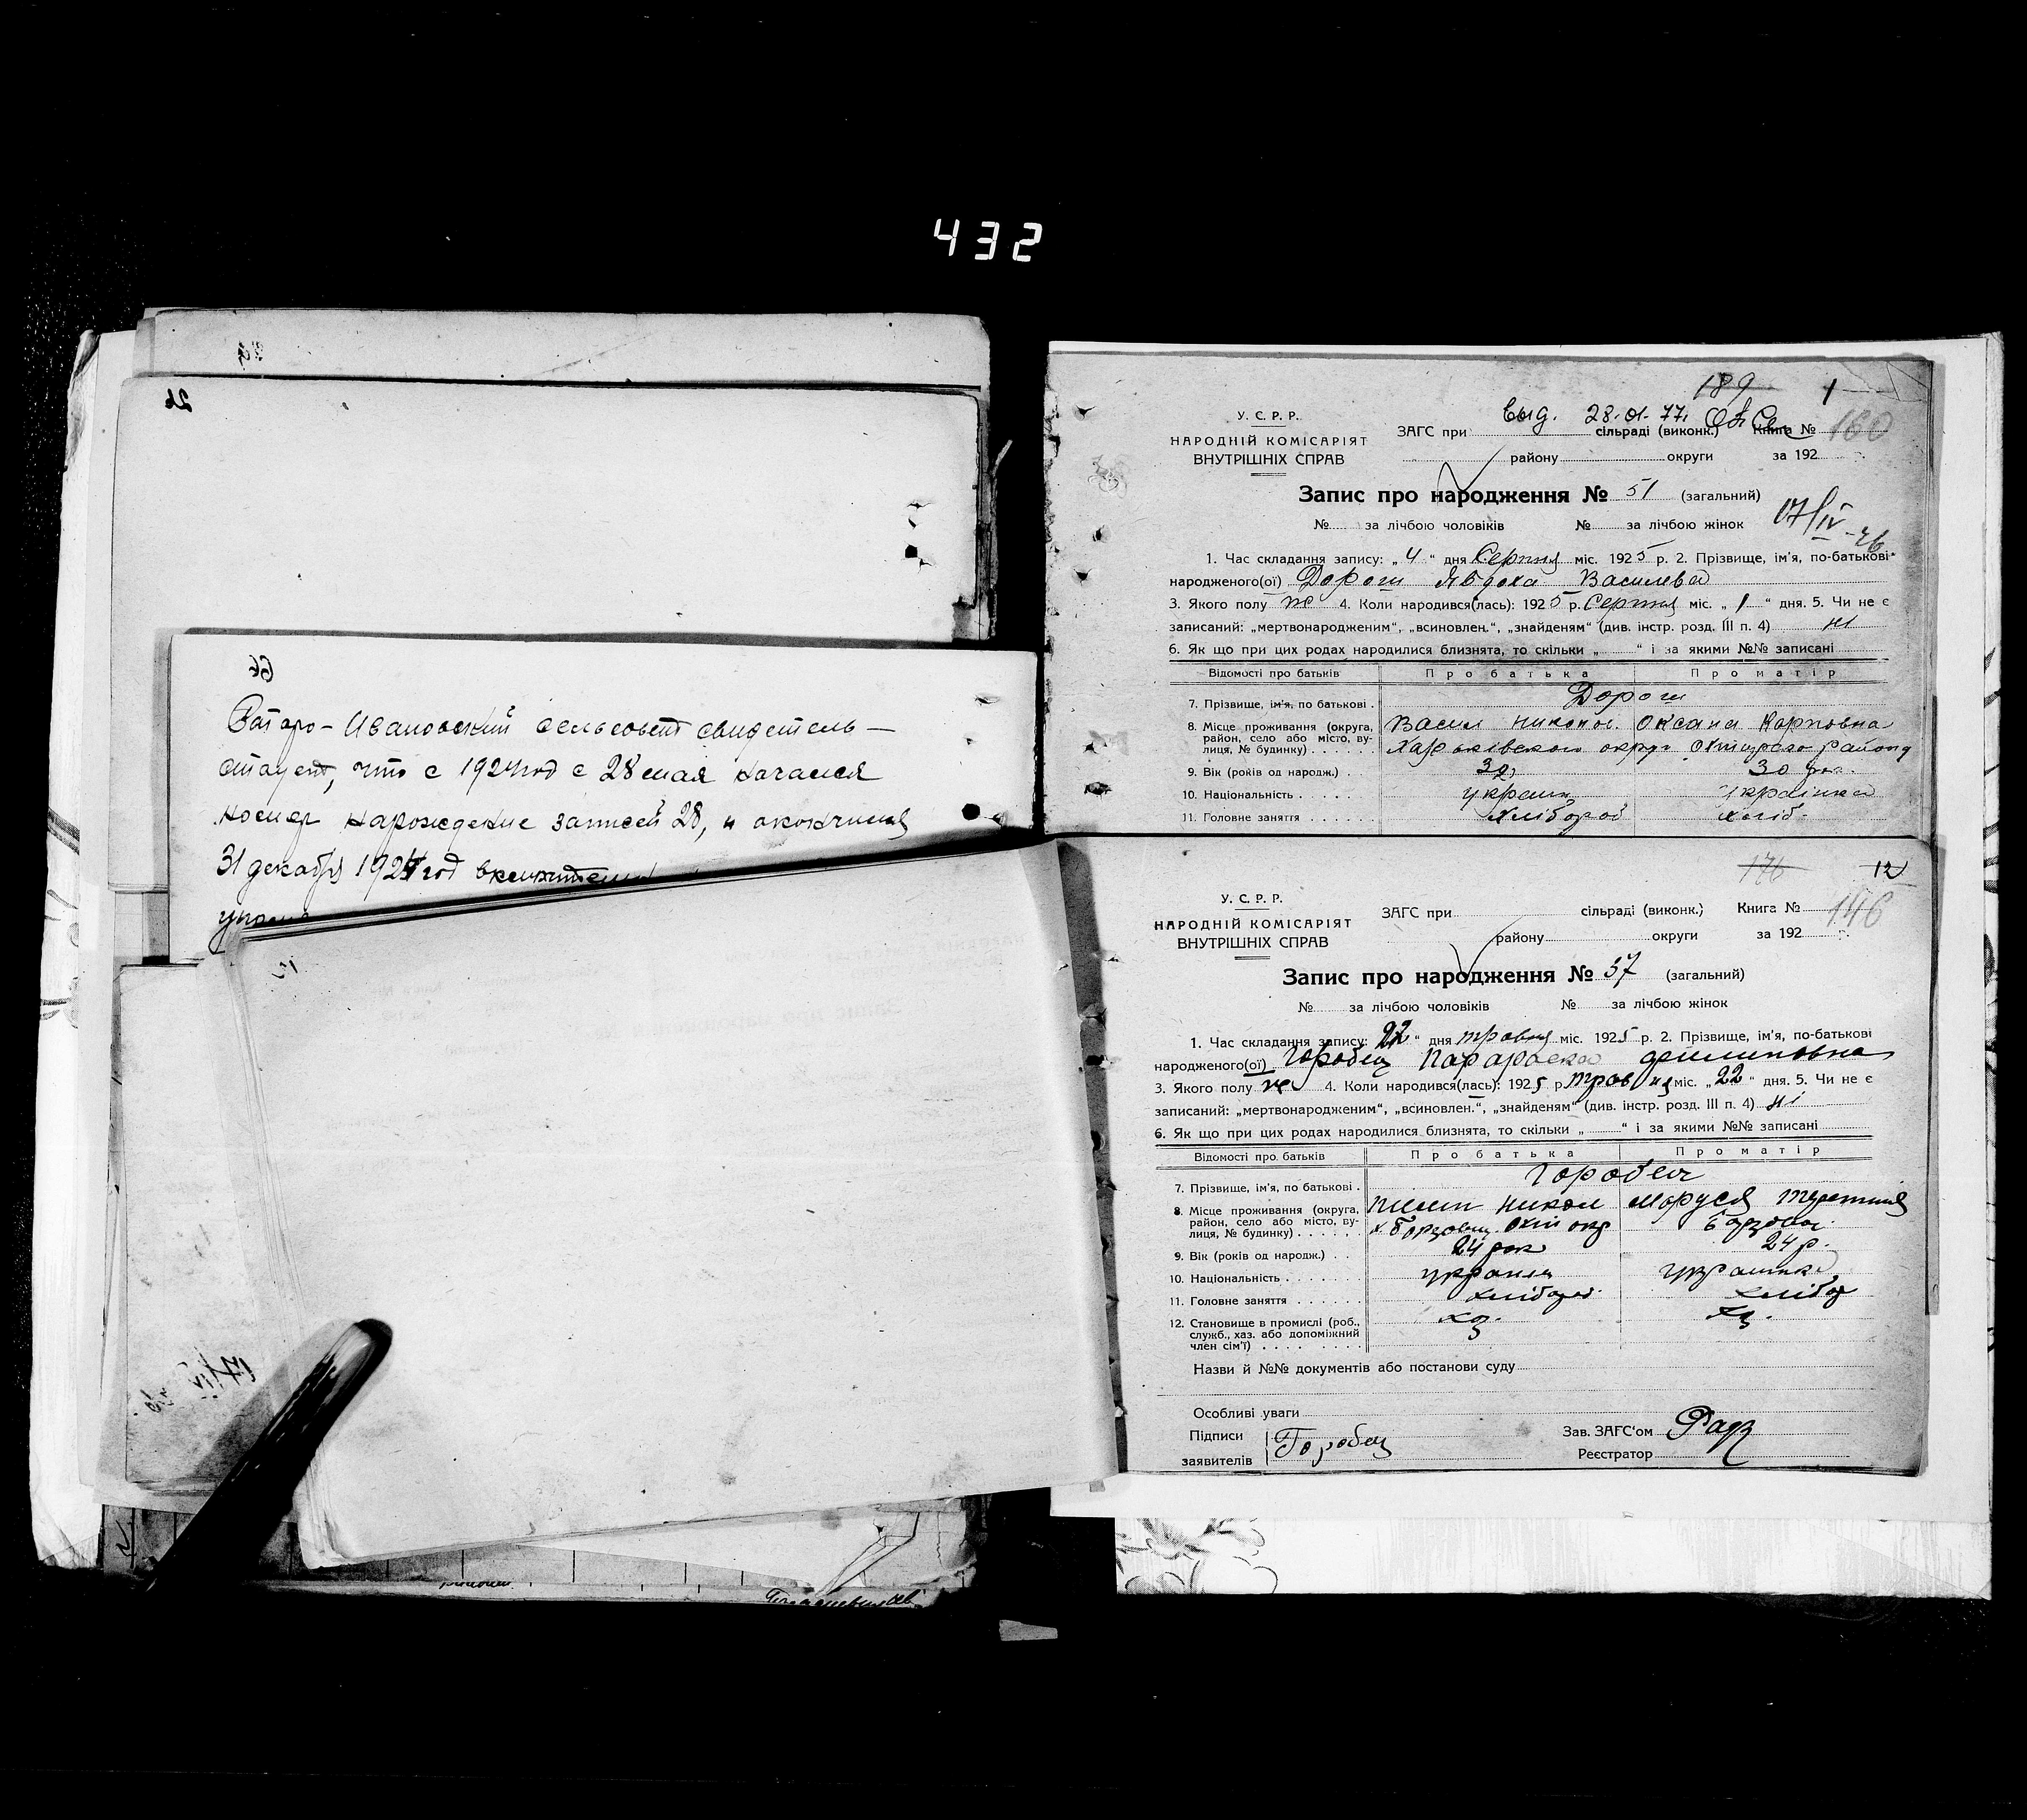 432
26
66
Ватаро-Ивановский сельсовет свидетель-
ствует, что с 1924 год с 28 мая начался
номер нарождение записей 28, и окончился
31 декабря 1924 год включительно
17/IV
189 1
У. С. Р. Р.
НАРОДНІЙ КОМІСАРІЯТ
ВНУТРІШНІХ СПРАВ
выд. 28.01.77.
ЗАГС при сільраді (виконк.) Книга № 160
району округи за 192
Запис про народження № 51 (загальний)
№ за лічбою чоловіків № за лічбою жінок
17/IV-76
1. Час складання запису: „4“ дня Серпня міс. 1925 р. 2. Прізвище, ім'я, по-батькові
народженого(ої) Дорош Явдоха Василева
3. Якого полу ж 4. Коли народився(лась): 1925 р. Серпня міс. „1“ дня. 5. Чи не є
записаний: „мертвонародженим“, „всиновлен.“, „знайденям“ (див. інстр. розд. III п. 4) ні
6. Як що при цих родах народилися близнята, то скільки „ “ і за якими №№ записані
Відомості про батьків Про батька Про матір
Дорош
7. Прізвище, ім'я, по батькові .
Васил Никонов. Оксана Карповна
8. Місце проживання (округа,
район, село або місто, ву-
лиця, № будинку) . . . . . Харьківского округу Охтирсько района
9. Вік (років од народж.) . 30 30 рок.
10. Національність . . . . . українц українка
11. Головне заняття . . . . . Хлібороб хліб.
176 12
У. С. Р. Р.
НАРОДНІЙ КОМІСАРІЯТ
ВНУТРІШНІХ СПРАВ
ЗАГС при сільраді (виконк.) Книга № 146
району округи за 192
Запис про народження № 37 (загальний)
№ за лічбою чоловіків № за лічбою жінок
1. Час складання запису: 22“ дня травня міс. 1925 р. 2. Прізвище, ім'я, по-батькові
народженого(ої) Горобец Парараска
3. Якого полу ж 4. Коли народився(лась): 1925 р травня міс. „22“ дня. 5. Чи не є
записаний: „мертвонародженим“, „всиновлен.“, „знайденям“ (див. інстр. розд. III п. 4) ні
6. Як що при цих родах народилися близнята, то скільки „ “ і за якими №№ записані
Відомості про батьків Про батька Про матір
Горобец
7. Прізвище, ім'я, по батькові .
Никон Маруся
8. Місце проживання (округа,
район, село або місто, ву-
лиця, № будинку) . . . . .
9. Вік (років од народж.) . . 24 рок 24 р.
10. Національність . . . . . . . українц українка
11. Головне заняття . . . . . . хлібороб. хлібор
12. Становище в промислі (роб.,
служб., хаз. або допоміжний
член сім'ї) . . . . . . . . хоз. хоз.
Назви й №№ документів або постанови суду
Особливі уваги
Підписи
заявителів Горобец
Зав. ЗАГС'ом
Реєстратор